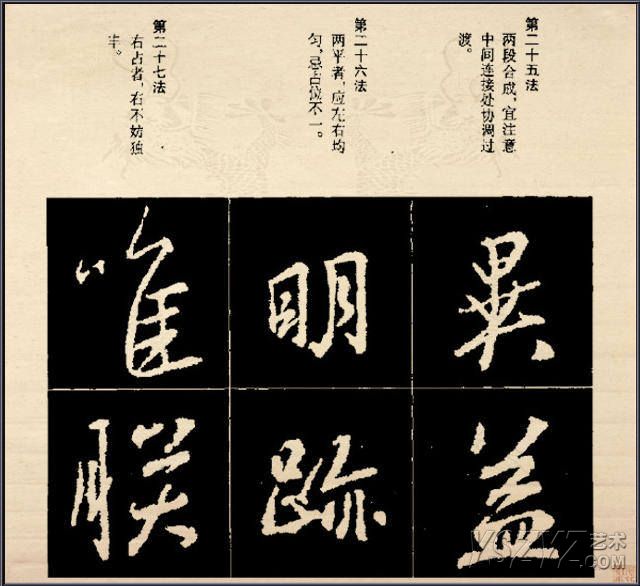 第二十五法
两段合成，宜注意
中间连接处协调过
渡。
第二十六法
两平者，应左右均
匀，忌占位不一。
第二十七法
右占者，右不妨独
丰。
畢 明 唯
盖 跡 联
YSZWZ艺术